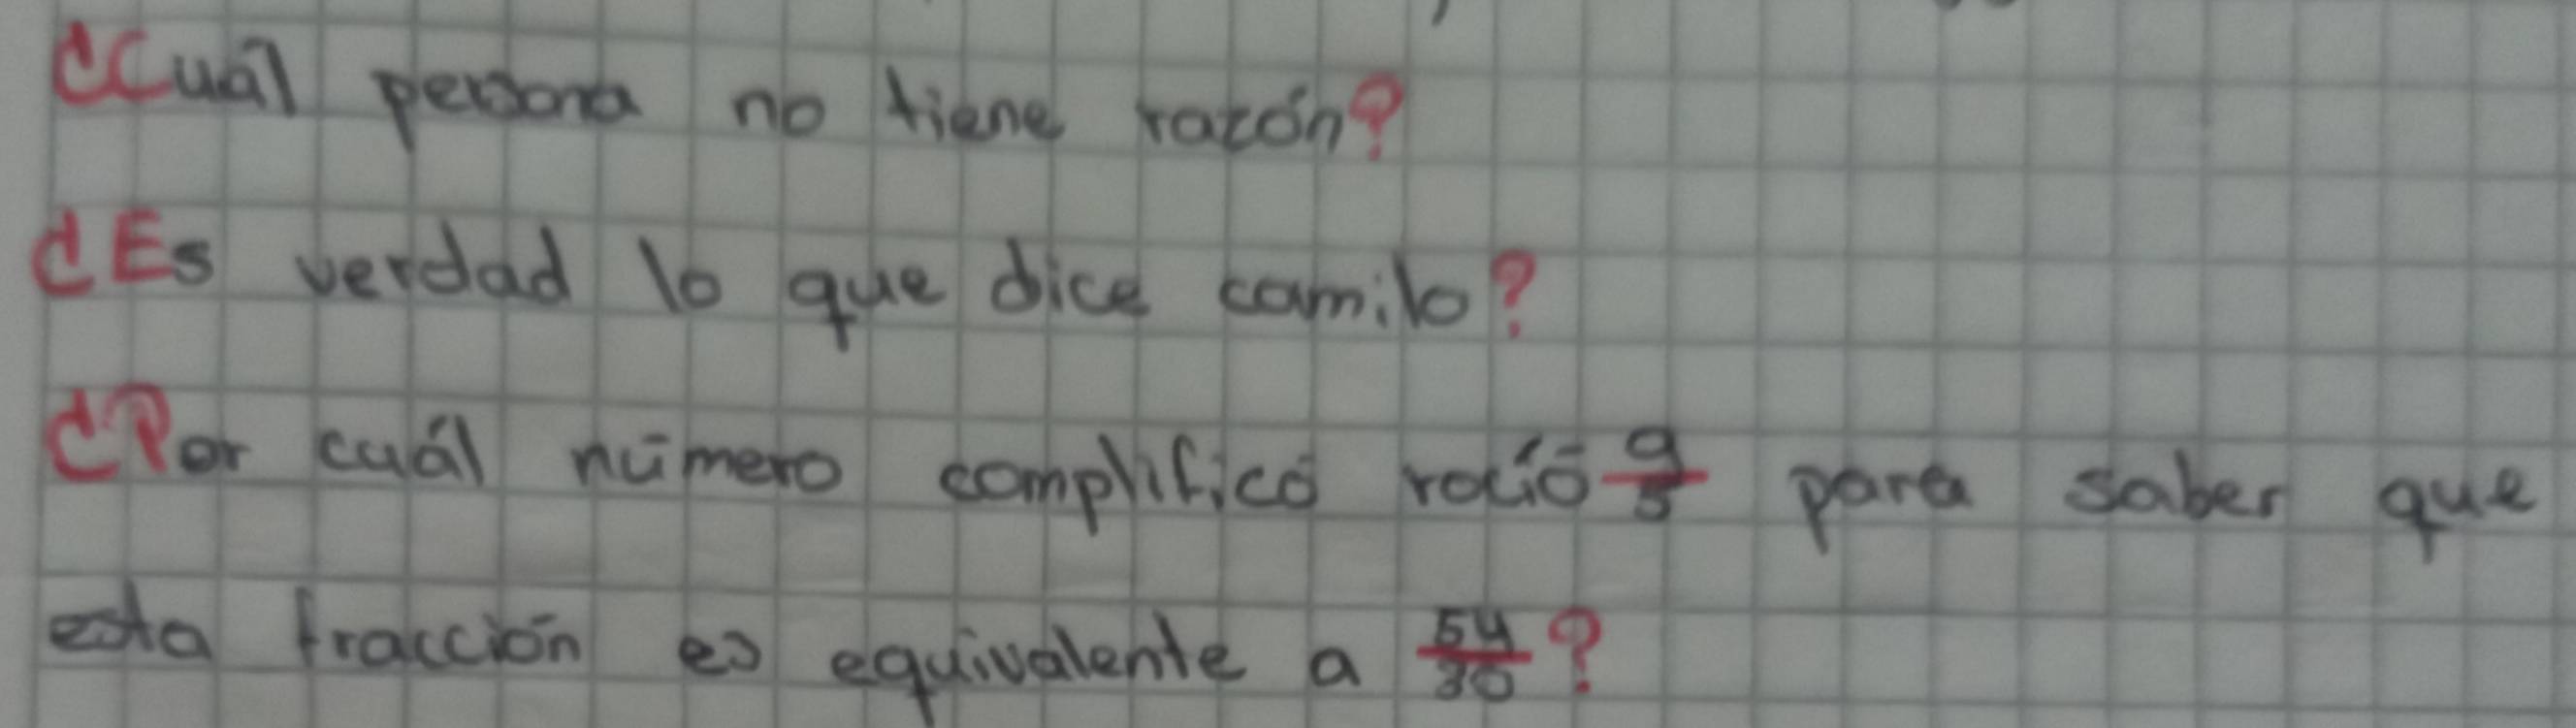 ¿Cuál persona no tiene razón?
¿Es verdad lo que dice camilo?
¿Por cuál número complificó roció 9/5 para saber que
esta fracción es equivalente a 54/30?